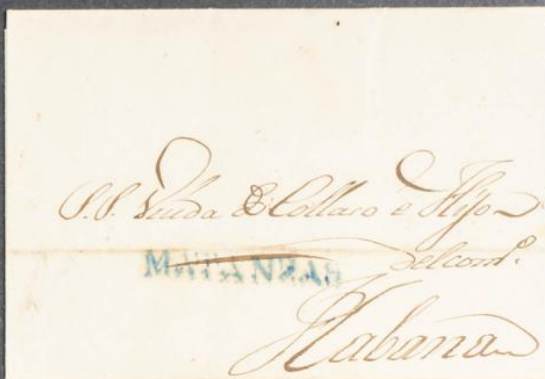 S.S. Viuda de Collaso é Hijo
MATANZAS
Delcom.º
Habana